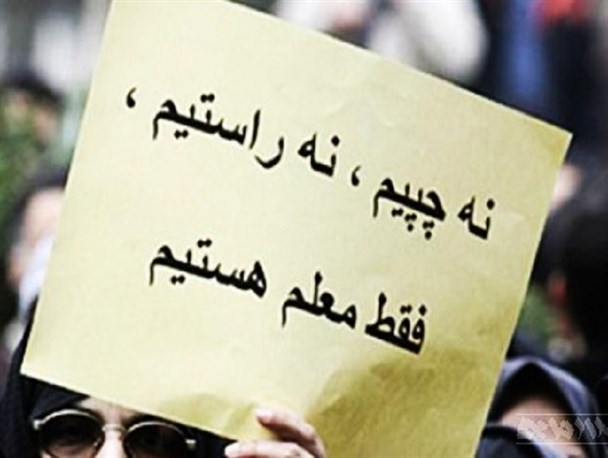 نه چپیم ، نه راستیم ،
فقط معلم هستیم